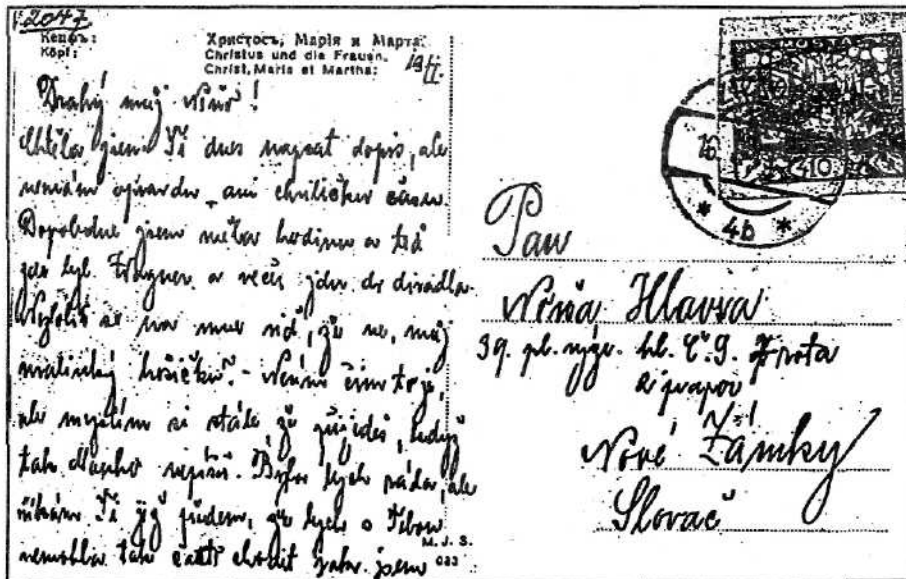 2047
Кепфъ:
Köpf:
Христосъ, Марія и Марта.
Christus und die Frauen.
Christ, Maria et Martha:
Drahý můj Nino!
Chtěla jsem Ti dnes napsat dopis, ale
nemám opravdu ani chviličku času
Dopoledne jsem měla hodinu a
byl Wagner a večer jdu do divadla
Nezlob se na mne, že ne, můj
malinký hošíčku. - Nevím čím to je,
ale myslím si stále že přijdeš, když
tak dlouho nepíšeš. Byla bych ráda, ale
říkám Ti že bych s Tebou
nemohla tak často chodit jsem
M. J. S.
033
16
4b
410
Pan
Hlavsa
39. pl. hl. č. 9.
Nové Zámky
Slovač